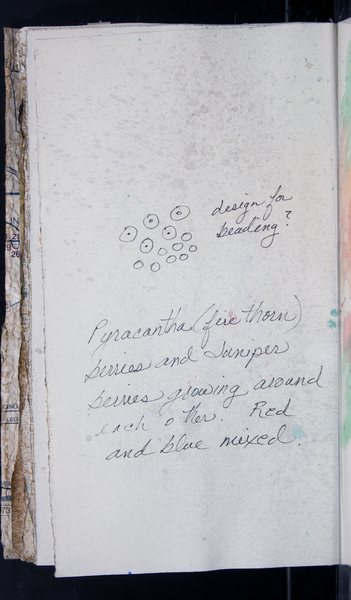 design for
beading?
Pyracantha (fire thorn)
berries and Juniper
berries growing around
each other. Red
and blue mixed.